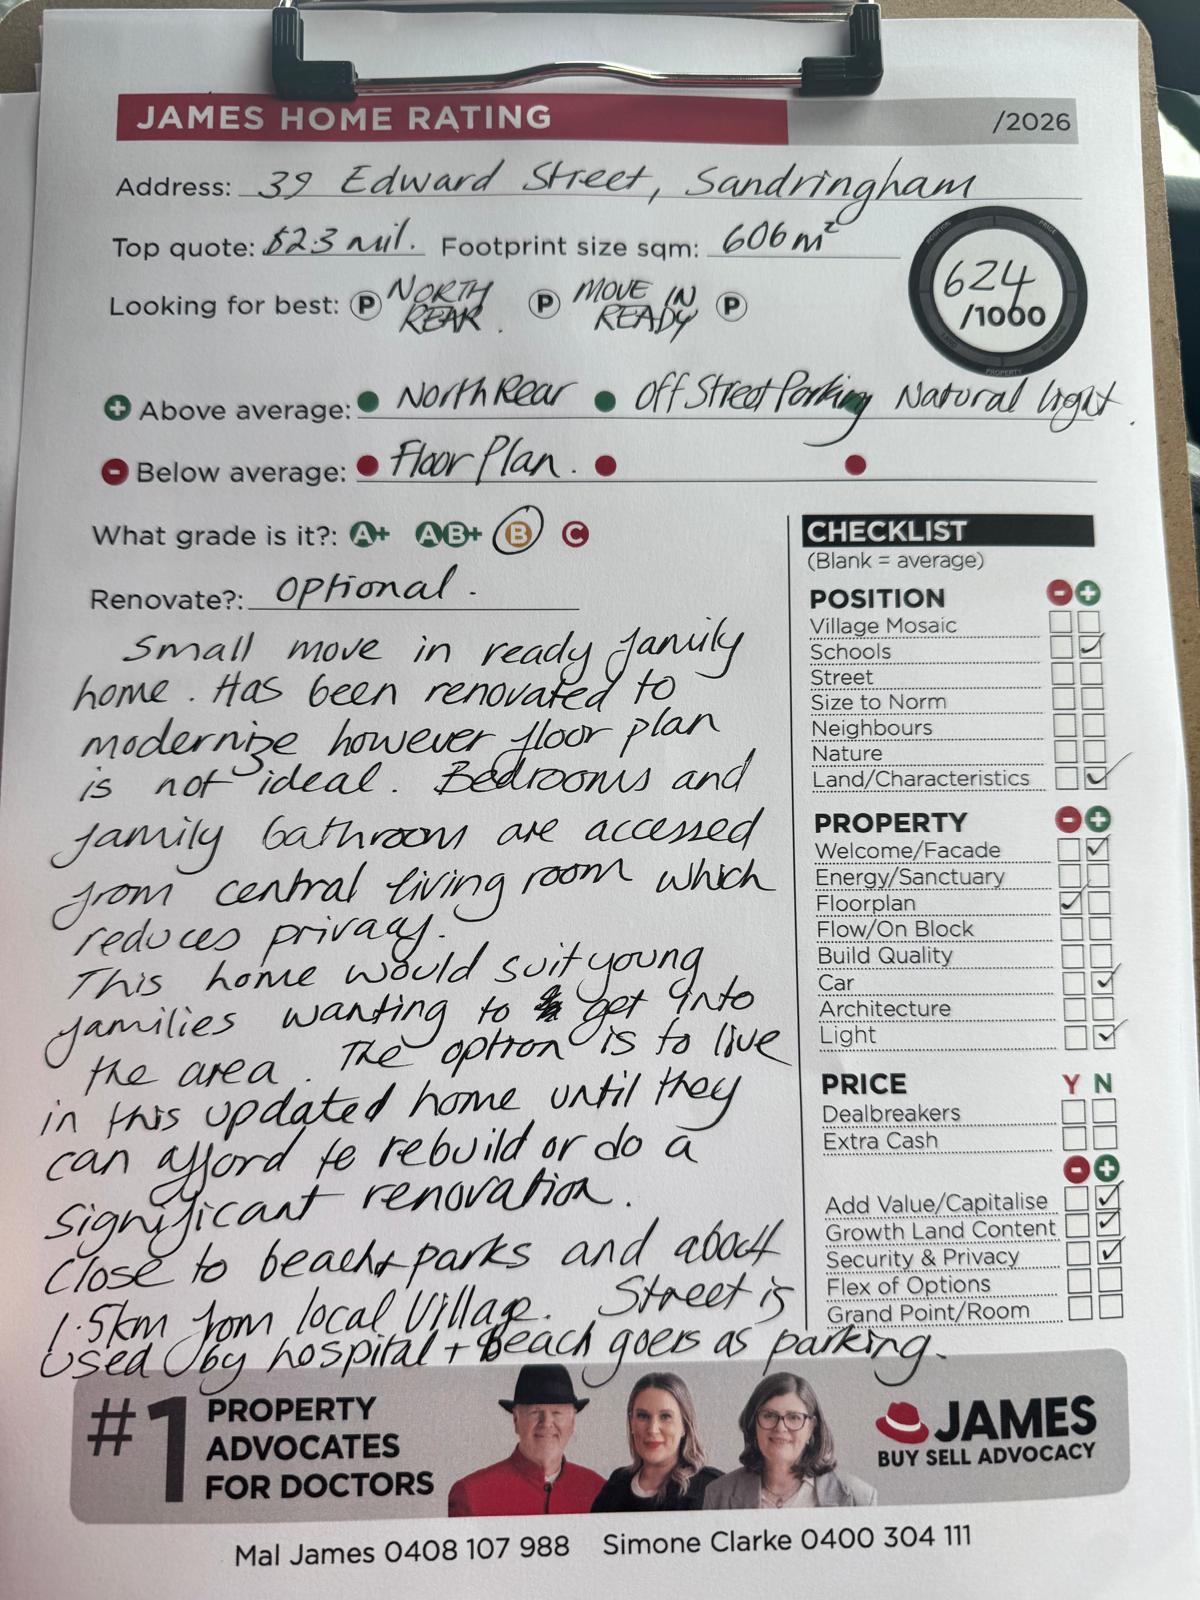 JAMES HOME RATING /2026
Address: 39 Edward Street, Sandringham
Top quote: $2.3 mil. Footprint size sqm: 606m²
624
/1000
Looking for best: P NORTH REAR. P MOVE IN READY P
+ Above average: North Rear Off Street Parking Natural light.
- Below average: Floor Plan.
What grade is it?: A+ AB+ B C
Renovate?: Optional.
Small move in ready family
home. Has been renovated to
modernize however floor plan
is not ideal. Bedrooms and
family bathroom are accessed
from central living room which
reduces privacy.
This home would suit young
families wanting to get into
the area. The option is to live
in this updated home until they
can afford to rebuild or do a
significant renovation.
Close to beach + parks and about
1.5km from local Village. Street is
used by hospital + Beach goers as parking.
CHECKLIST
(Blank = average)
POSITION - +
Village Mosaic
Schools ✓
Street
Size to Norm
Neighbours
Nature
Land/Characteristics ✓
PROPERTY - +
Welcome/Facade ✓
Energy/Sanctuary
Floorplan ✓
Flow/On Block
Build Quality
Car ✓
Architecture
Light ✓
PRICE Y N
Dealbreakers
Extra Cash
- +
Add Value/Capitalise ✓
Growth Land Content ✓
Security & Privacy ✓
Flex of Options
Grand Point/Room
#1 PROPERTY
ADVOCATES
FOR DOCTORS
JAMES
BUY SELL ADVOCACY
Mal James 0408 107 988 Simone Clarke 0400 304 111